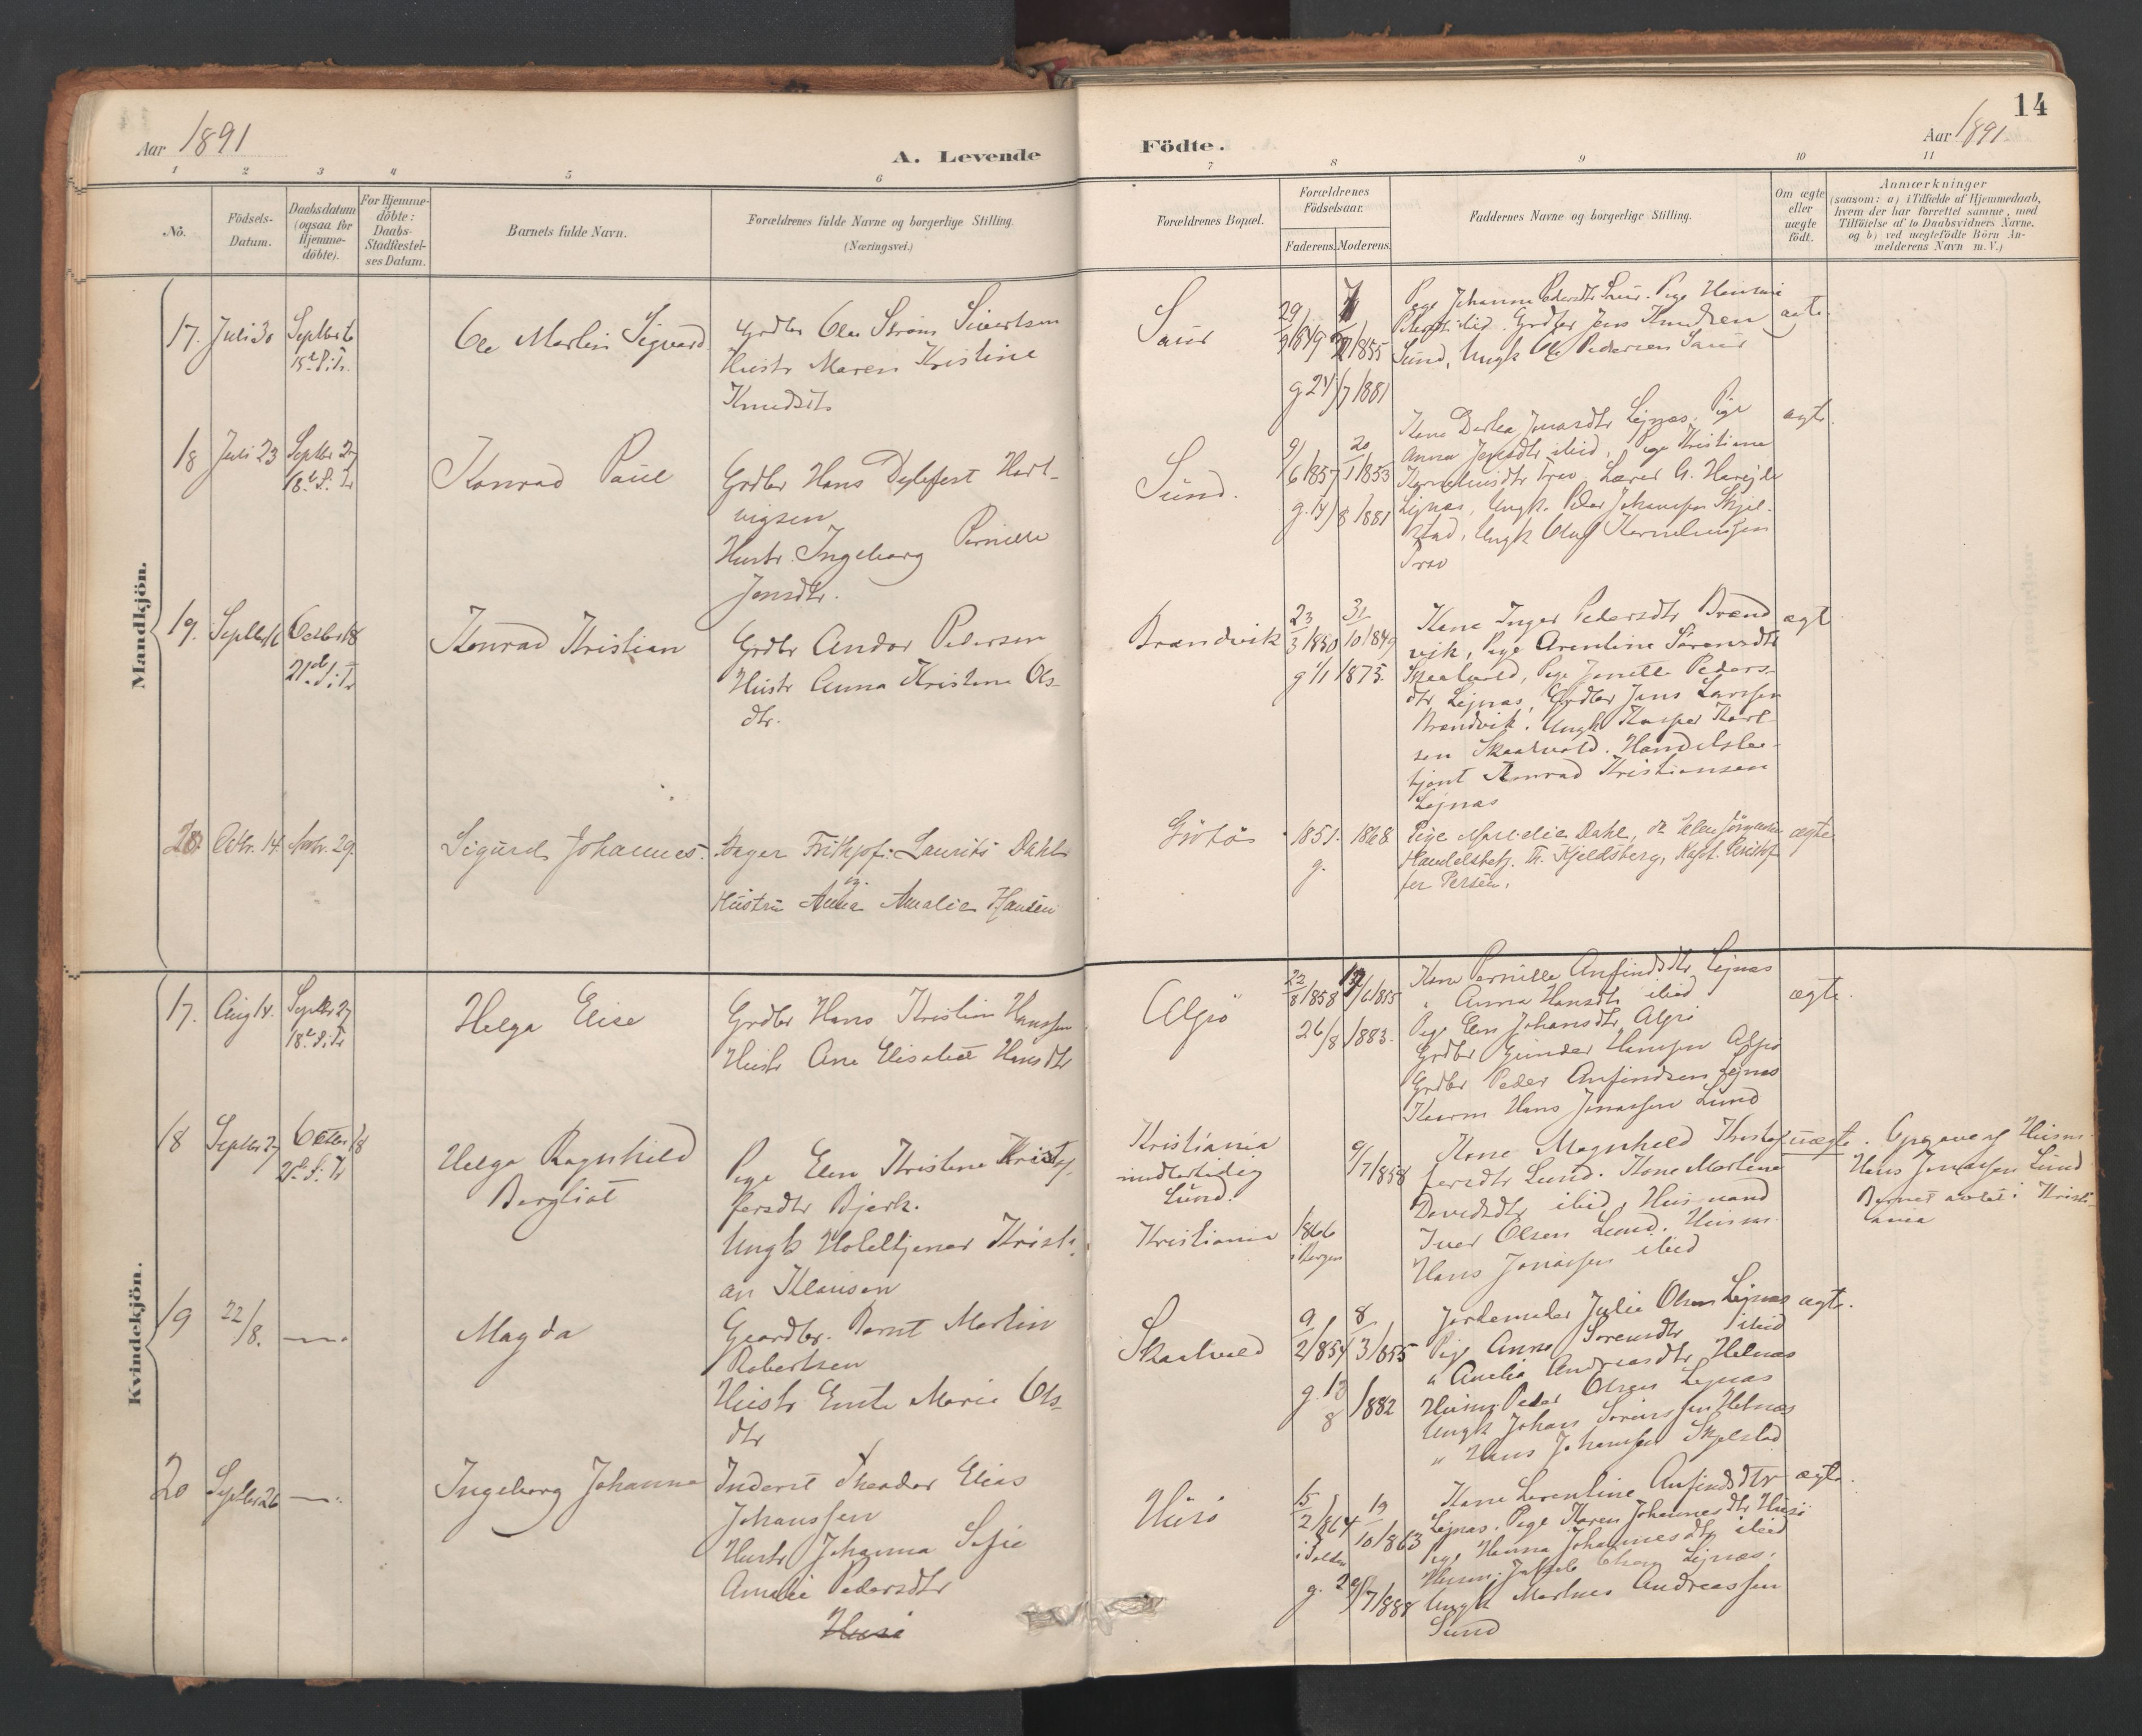 14
Aar 1891
A. Levende
Födte.
Aar 1891
1 2 3 4 5 6 7 8 9 10 11
No.
Födsels-Datum.
Daabsdatum (ogsaa for Hjemme-döbte).
For Hjemme-döbte: Daabs-Stadfæstel-ses Datum.
Barnets fulde Navn.
Forældrenes fulde Navne og borgerlige Stilling.
(Næringsvei.)
Forældrenes Bopæl.
Forældrenes Födselsaar.
Faderens. Moderens.
Faddernes Navne og borgerlige Stilling.
Om ægte eller uægte födt.
Anmærkninger
(saasom: a) i Tilfælde af Hjemmedaab,
hvem der har forrettet samme, med
Tilföielse af to Daabsvidners Navne,
og b) ved uægtefödte Börn An-
melderens Navn m. V.)
Mandkjön.
17. Juli 30 Septbr 6
15de S. Tr.
Ole Martin Sigvard
Grdbr Ole Strøm Sivertsen
Hustr Maren Kristine
Knudsdtr
Saur
29/9 1849
1855
g 24/7 1881
Pige Johanna Pedersdtr Saur. Pige Hansine
ibid. Grdbr Jens Knudsen
Sund, Ungk Ole Pedersen Saur
ægte.
18 Juli 23 Septbr 27
18de S. Tr
Konrad Paul
Grdbr Hans Hart-
vigsen
Hustr. Ingeborg Pernille
Jonsdtr.
Sund.
9/6 1857 20/1 1853
g. 14/8 1881
Kone Jonasdtr Lejnæs, Pige
Anna Jonsdtr ibid, Pige Kristiane
Korneliusdtr Træo Lærer G.
Lejnæs, Ungk. Peder Johansen Skjel-
stad, Ungk Oluf Korneliussen
Træo
ægte
19. Septbr 16 Octbr 18
21de S. Tr
Konrad Kristian
Grdbr Andor Pedersen
Hustr Anna Kristine Ols-
dtr.
Brændvik
23/3 1850 31/10 1849
g 1/1 1875.
Kone Inger Pedersdtr Brænd-
vik, Pige Arentine Sörensdtr
Skaalvold, Pige Jonette Peders-
dtr Lejnæs, Grdbr Jens Larssen
Brændvik. Ungk Kasper Karl-
sen Skaalvold. Handelsbe-
tjent Konrad Kristiansen
Lejnæs
ægte
20 Octbr. 14. Novbr. 29.
Sigurd Johannes.
Bager Frithjof Laurits Dahl
og
Hustru Anna Amalie Hansen
Grötö
1851. 1868
g.
Pige Dahl, do Helene Jörgensen
Handelsbetj. Th. Kjeldsberg, Kapt. Kristof-
fer Persen.
ægte
Kvindekjön.
17. Aug 14. Septbr 27
18de S. Tr
Helga Elise
Grdbr Hans Kristian Hanssen
Hustr Ane Elisabet Hansdtr
Alpö
22/8 1858
26/8 1883.
Kone Pernille Anfindsdtr Lejnæs
" Anna Hansdtr ibid
Pige Elen Johansdtr Alpö
Grdbr Gunder Hanssen Alpö
Grdbr Peder Anfindsen Lejnæs
Husm Hans Jonassen Lund
ægte.
18 Septbr 27 Octbr 18
21de S. Tr
Helga Ragnhild
Bergliot
Pige Elen Kristine Kristof-
fersdtr Bjerk.
Ungk Hoteltjener Kristi-
an Klausen
Kristiania
midlertidig
Lund.
Kristiania
9/7 1858
1866
i Bergen
Kone Magnhild Kristof-
fersdtr Lund. Kone Martine
Davidsdtr ibid, Husmand
Iver Olsen Lund. Husm.
Hans Jonassen ibid
uægte.
Opgave af Husm.
Hans Jonassen Lund
Barnet avlet i Kristi-
ania
19 22/8. —
Magda
Gaardbr. Bernt Martin
Robertsen
Hustr Marie Ols-
dtr
Skaalvold
9/2 1854 8/3 1855
g. 13/8 1882
Jordemoder Julie Olsen Lejnæs
Pige Anna Sörensdtr ibid
" Amelia Andreasdtr Helnæs
Husm. Peder Olsen Lejnæs
Ungk Johan Sörenssen Helnæs
" Hans Johanssen Skjelstad
ægte.
20 Septbr 26 —
Ingeborg Johanna
Inderst Theodor Elias
Johanssen
Hustr Johanna Sofie
Amalie Pedersdtr
Husö
Husö
15/2 1864 19/10 1863
g. 29/7 1888
Kone Lorentine Anfindsdtr
Lejnæs. Pige Karen Johannesdtr Husö
Pige Hanna Johannesdtr ibid
Husm. Olsen Lejnæs.
Ungk Markus Andreassen
Sund
ægte.